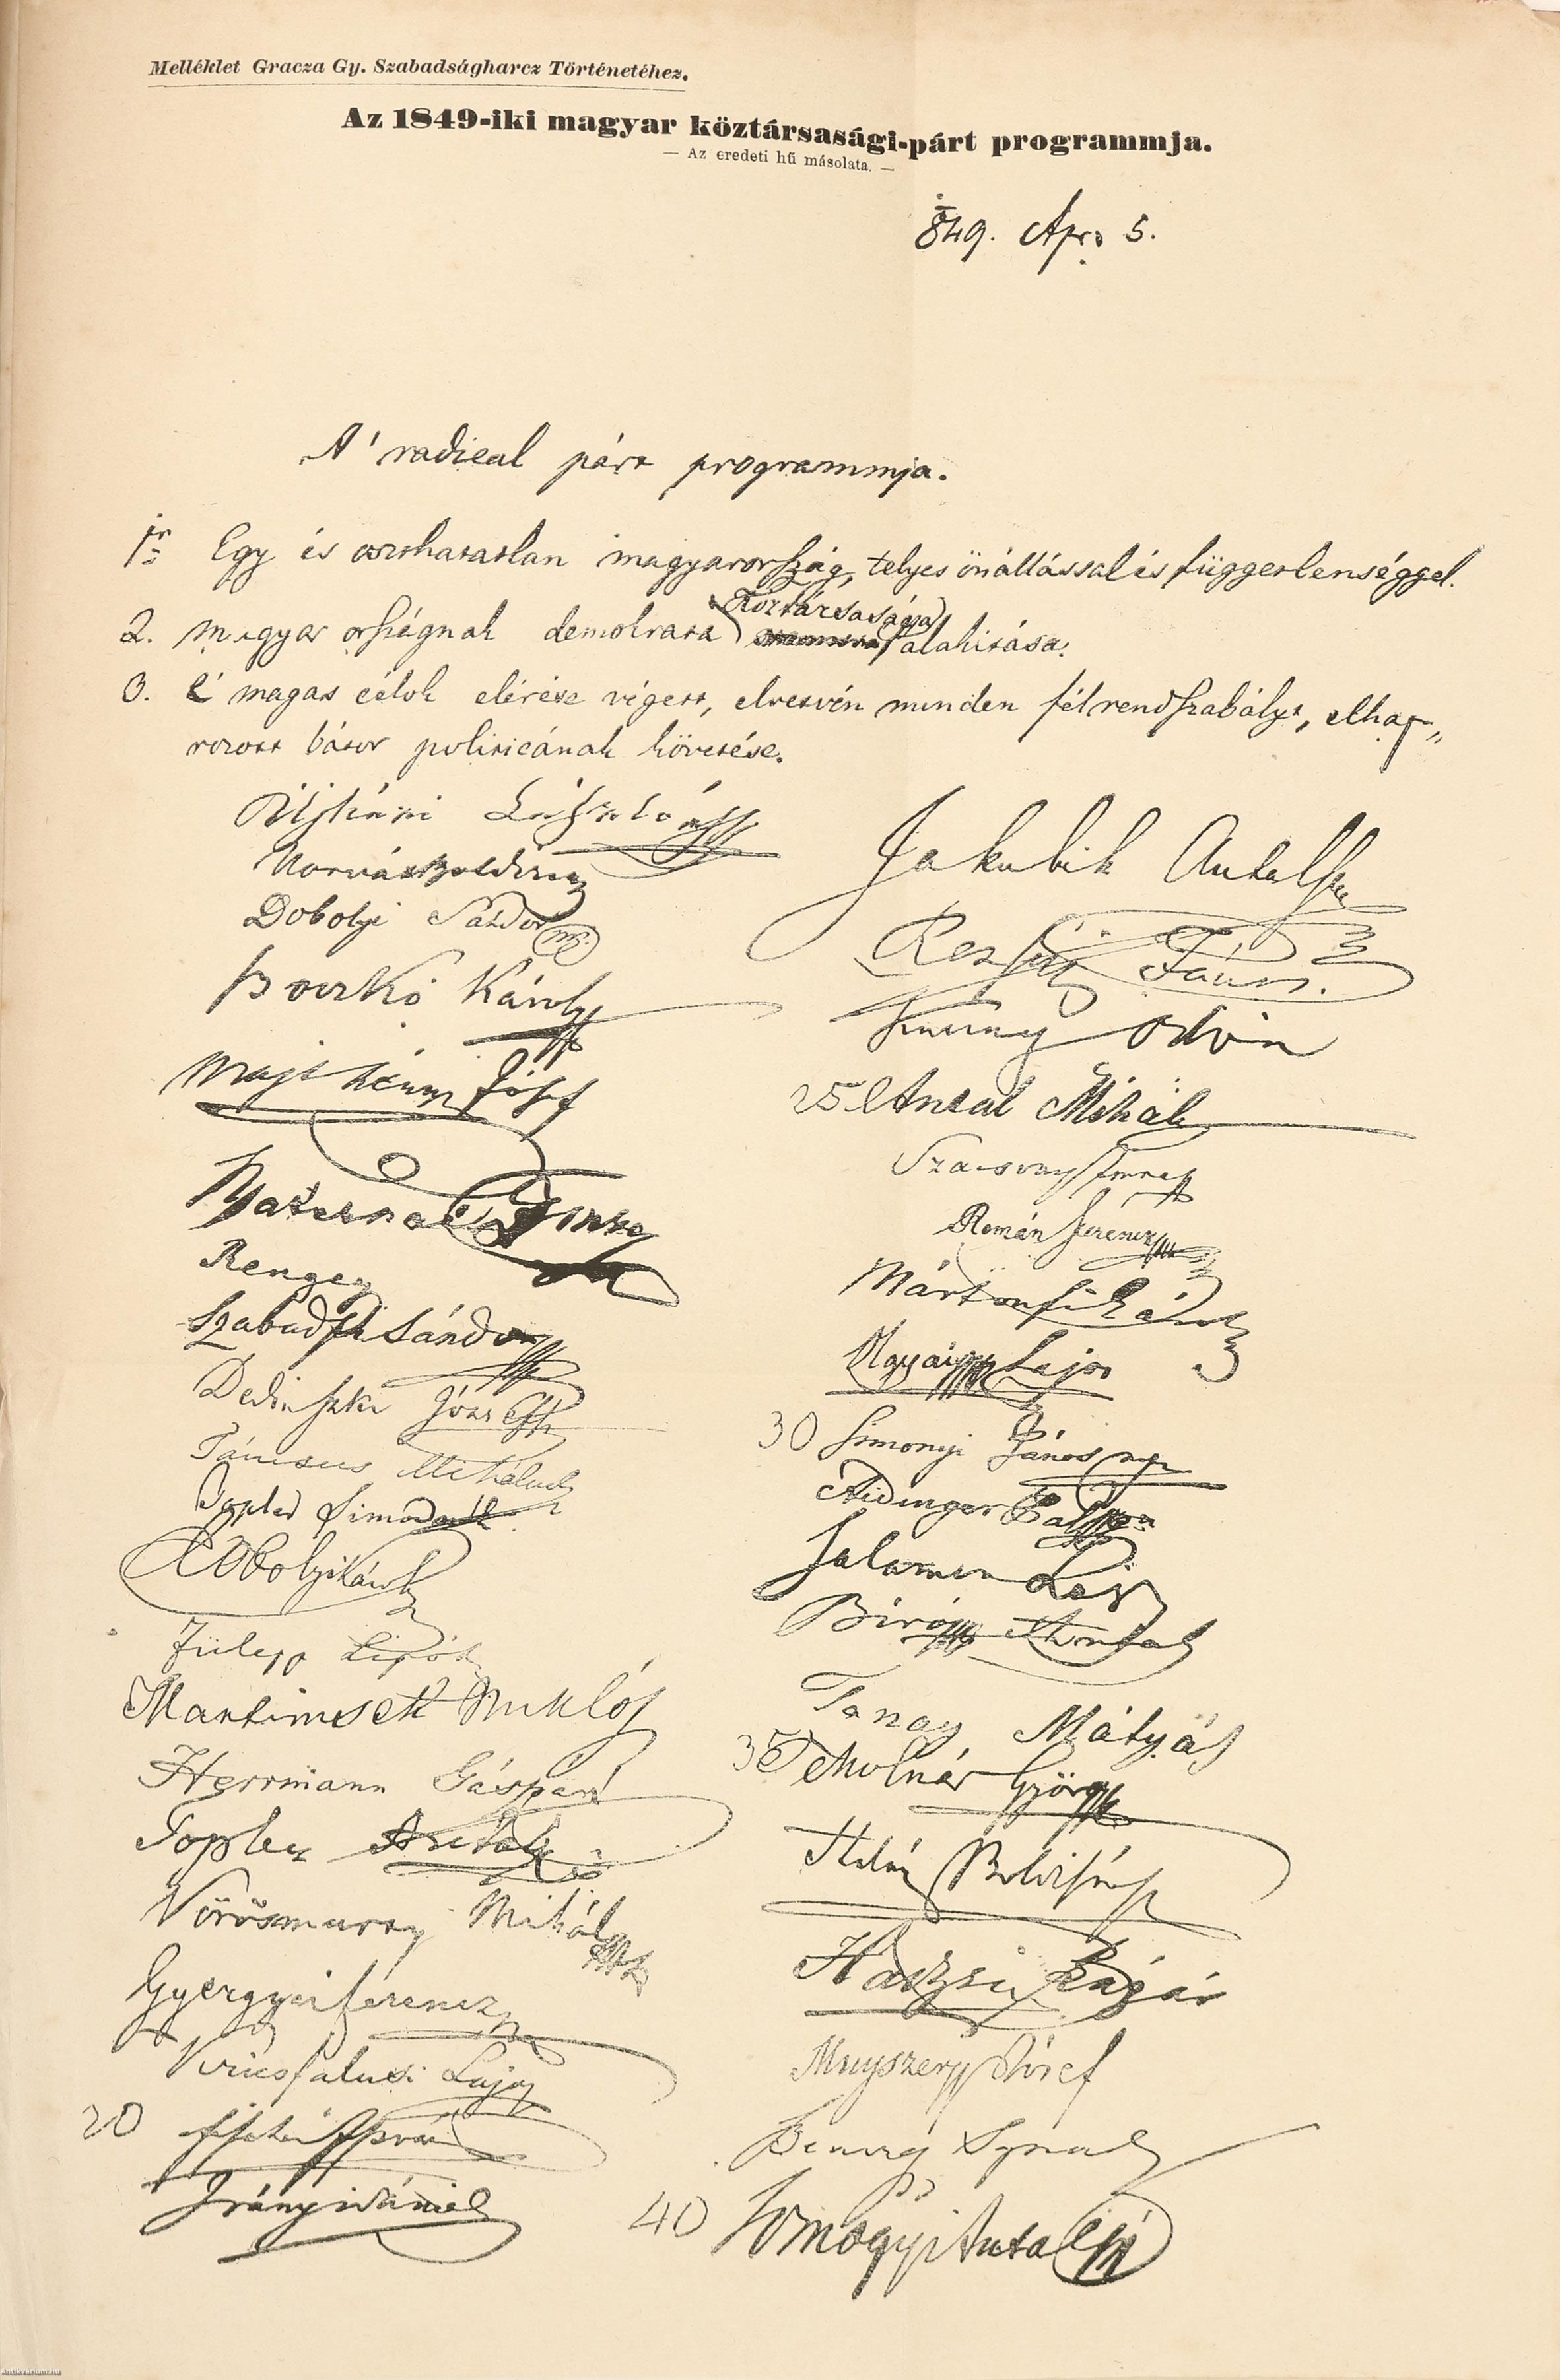 Melléklet Gracza Gy. Szabadságharcz Történetéhez.
Az 1849-iki magyar köztársasági-párt programmja.
— Az eredeti hű másolata. —
849. Apr. 5.
A' radical párt programmja.
1ör Egy és oszthatatlan magyarország, telyes önállással és függetlenséggel.
2. magyar országnak democrata
Köztársasági
alakitása.
3. E' magas célok elérése végett, elvetvén minden félrendszabályt, elhat„
rozott bátor politicának követése.
Ujházi László
Horvát Boldizsar
Dobolyi Sándor
Boczkó Károly
Majthényi Jósef
Rengey
Szabadfi Sándor
Dedinszki József
Táncsics Mihály
Topler Simon
Dobolyi Károly
Fülepp Lipót
Martinsek Miklós
Herrmann Gáspár
Topler Antal
Vörösmarty Mihál
Gyergyai ferencz
Vriesfalusi Lajos
20
Irányi Dániel
Jakubik Antal
Rezsőfi János
Ödön
25 Antal Mihály
Szacsvay Imre
Román ferencz
Mártonfi Károly
Ugyai Lajos
30 Simonyi János
Aidinger Pál
Salamon Lajos
Biró Antal
Tanay Mátyás
35 Molnár György
Halász Boldizsár
Haczsi Lázár
Muyszery Jósef
Ignacz
40 Somogyi Antal
Antikvarium.hu